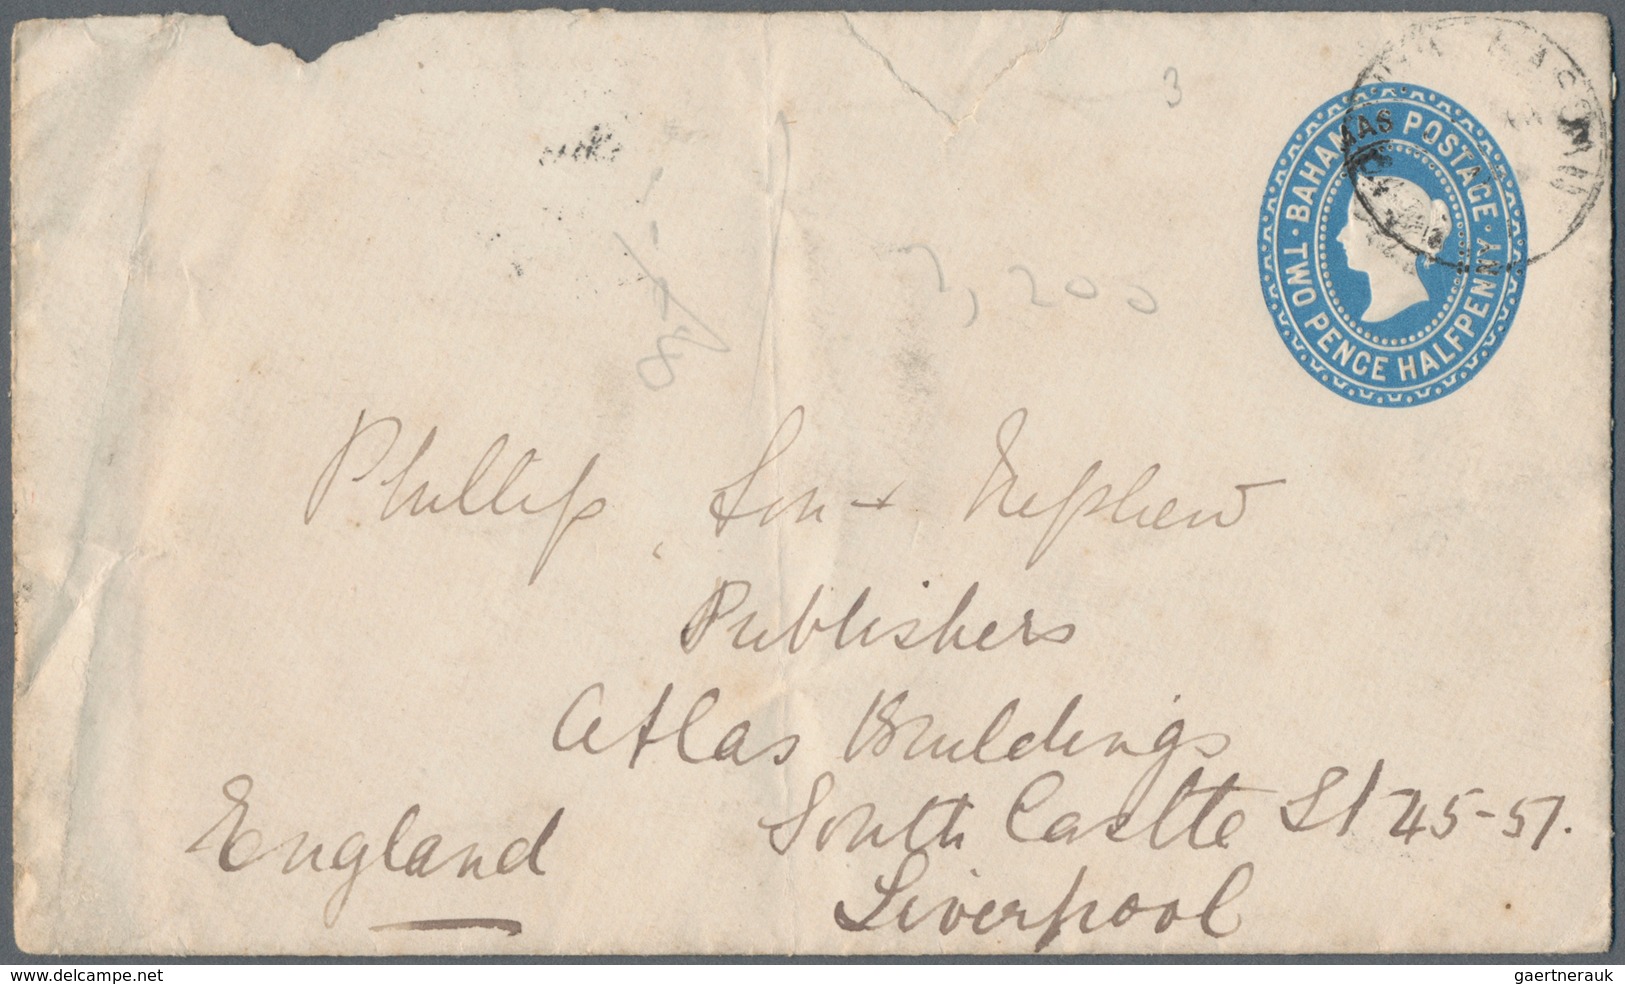 3
BAHAMAS POSTAGE
TWO PENCE HALFPENNY
7,200
Phillip, Son + Nephew
Publishers
Atlas Buildings
South Castle St 45-51.
England
Liverpool
www.delcampe.net
gaertnerauk